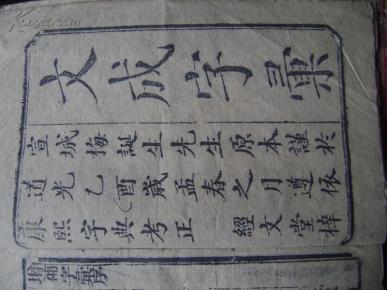 文成字彙
宣城梅誕生先生原本謹於
道光乙酉歲孟春之月遵依
康熙字典考正 經文堂梓